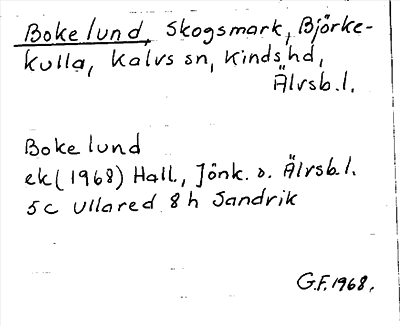 Bokelund, Skogsmark, Björke-
kulla, Kalvs sn, Kinds hd,
Älvsb.l.
Bokelund
ek (1968) Hall., Jönk. o. Älvsb.l.
5c Ullared 8h Sandvik
G.F. 1968.